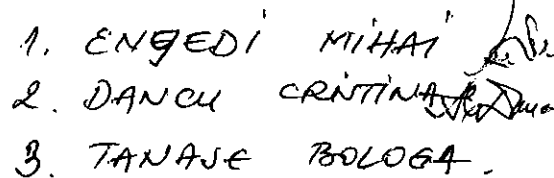 1. ENGEDI MIHAI
2. DANCU CRNTINA
3. TANASE BOLOGA.